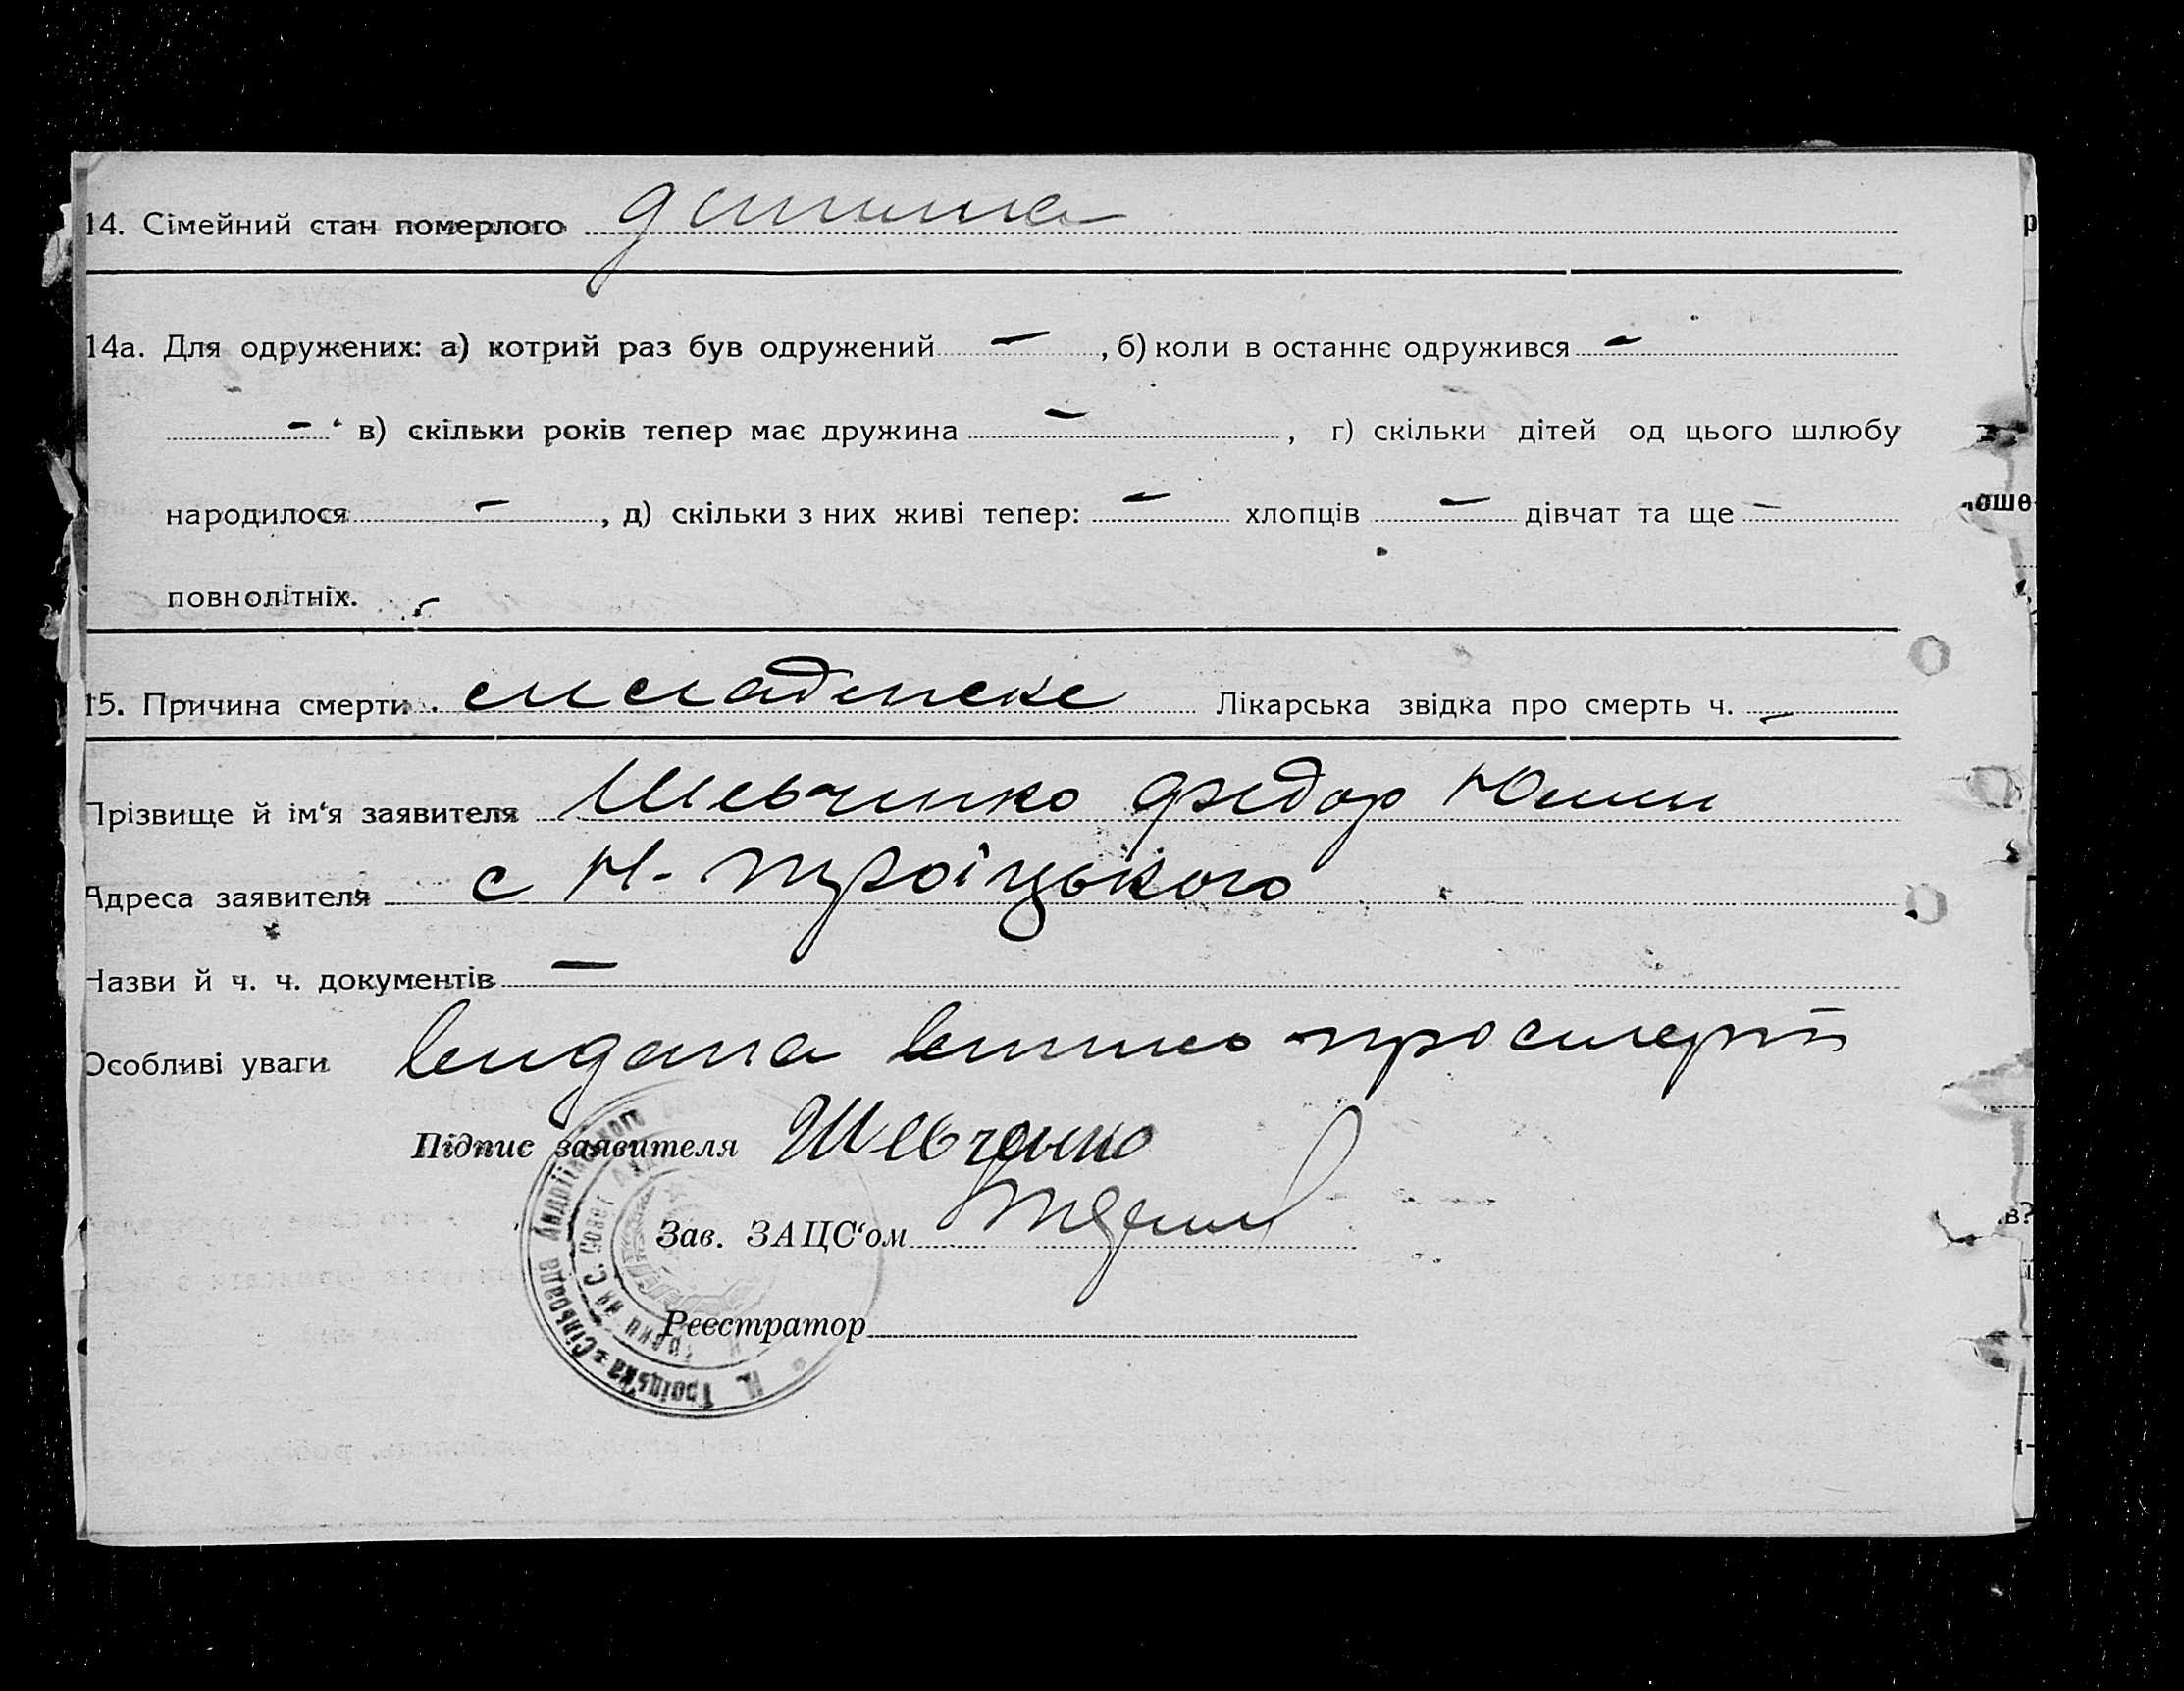 14. Сімейний стан померлого дитина
14а. Для одружених: а) котрий раз був одружений — , б) коли в останнє одружився —
— в) скільки років тепер має дружина — , г) скільки дітей од цього шлюбу
народилося — , д) скільки з них живі тепер: — хлопців — дівчат та ще —
повнолітніх.
15. Причина смерти младенске Лікарська звідка про смерть ч. —
Прізвище й ім'я заявителя Шевченко Федор
Адреса заявителя с Н-Троіцького
Назви й ч. ч. документів —
Особливі уваги видана витяг про смерть
Підпис заявителя Шевченко
Зав. ЗАЦС'ом
Реєстратор
Н. Троіцька Сільрада Андріївського